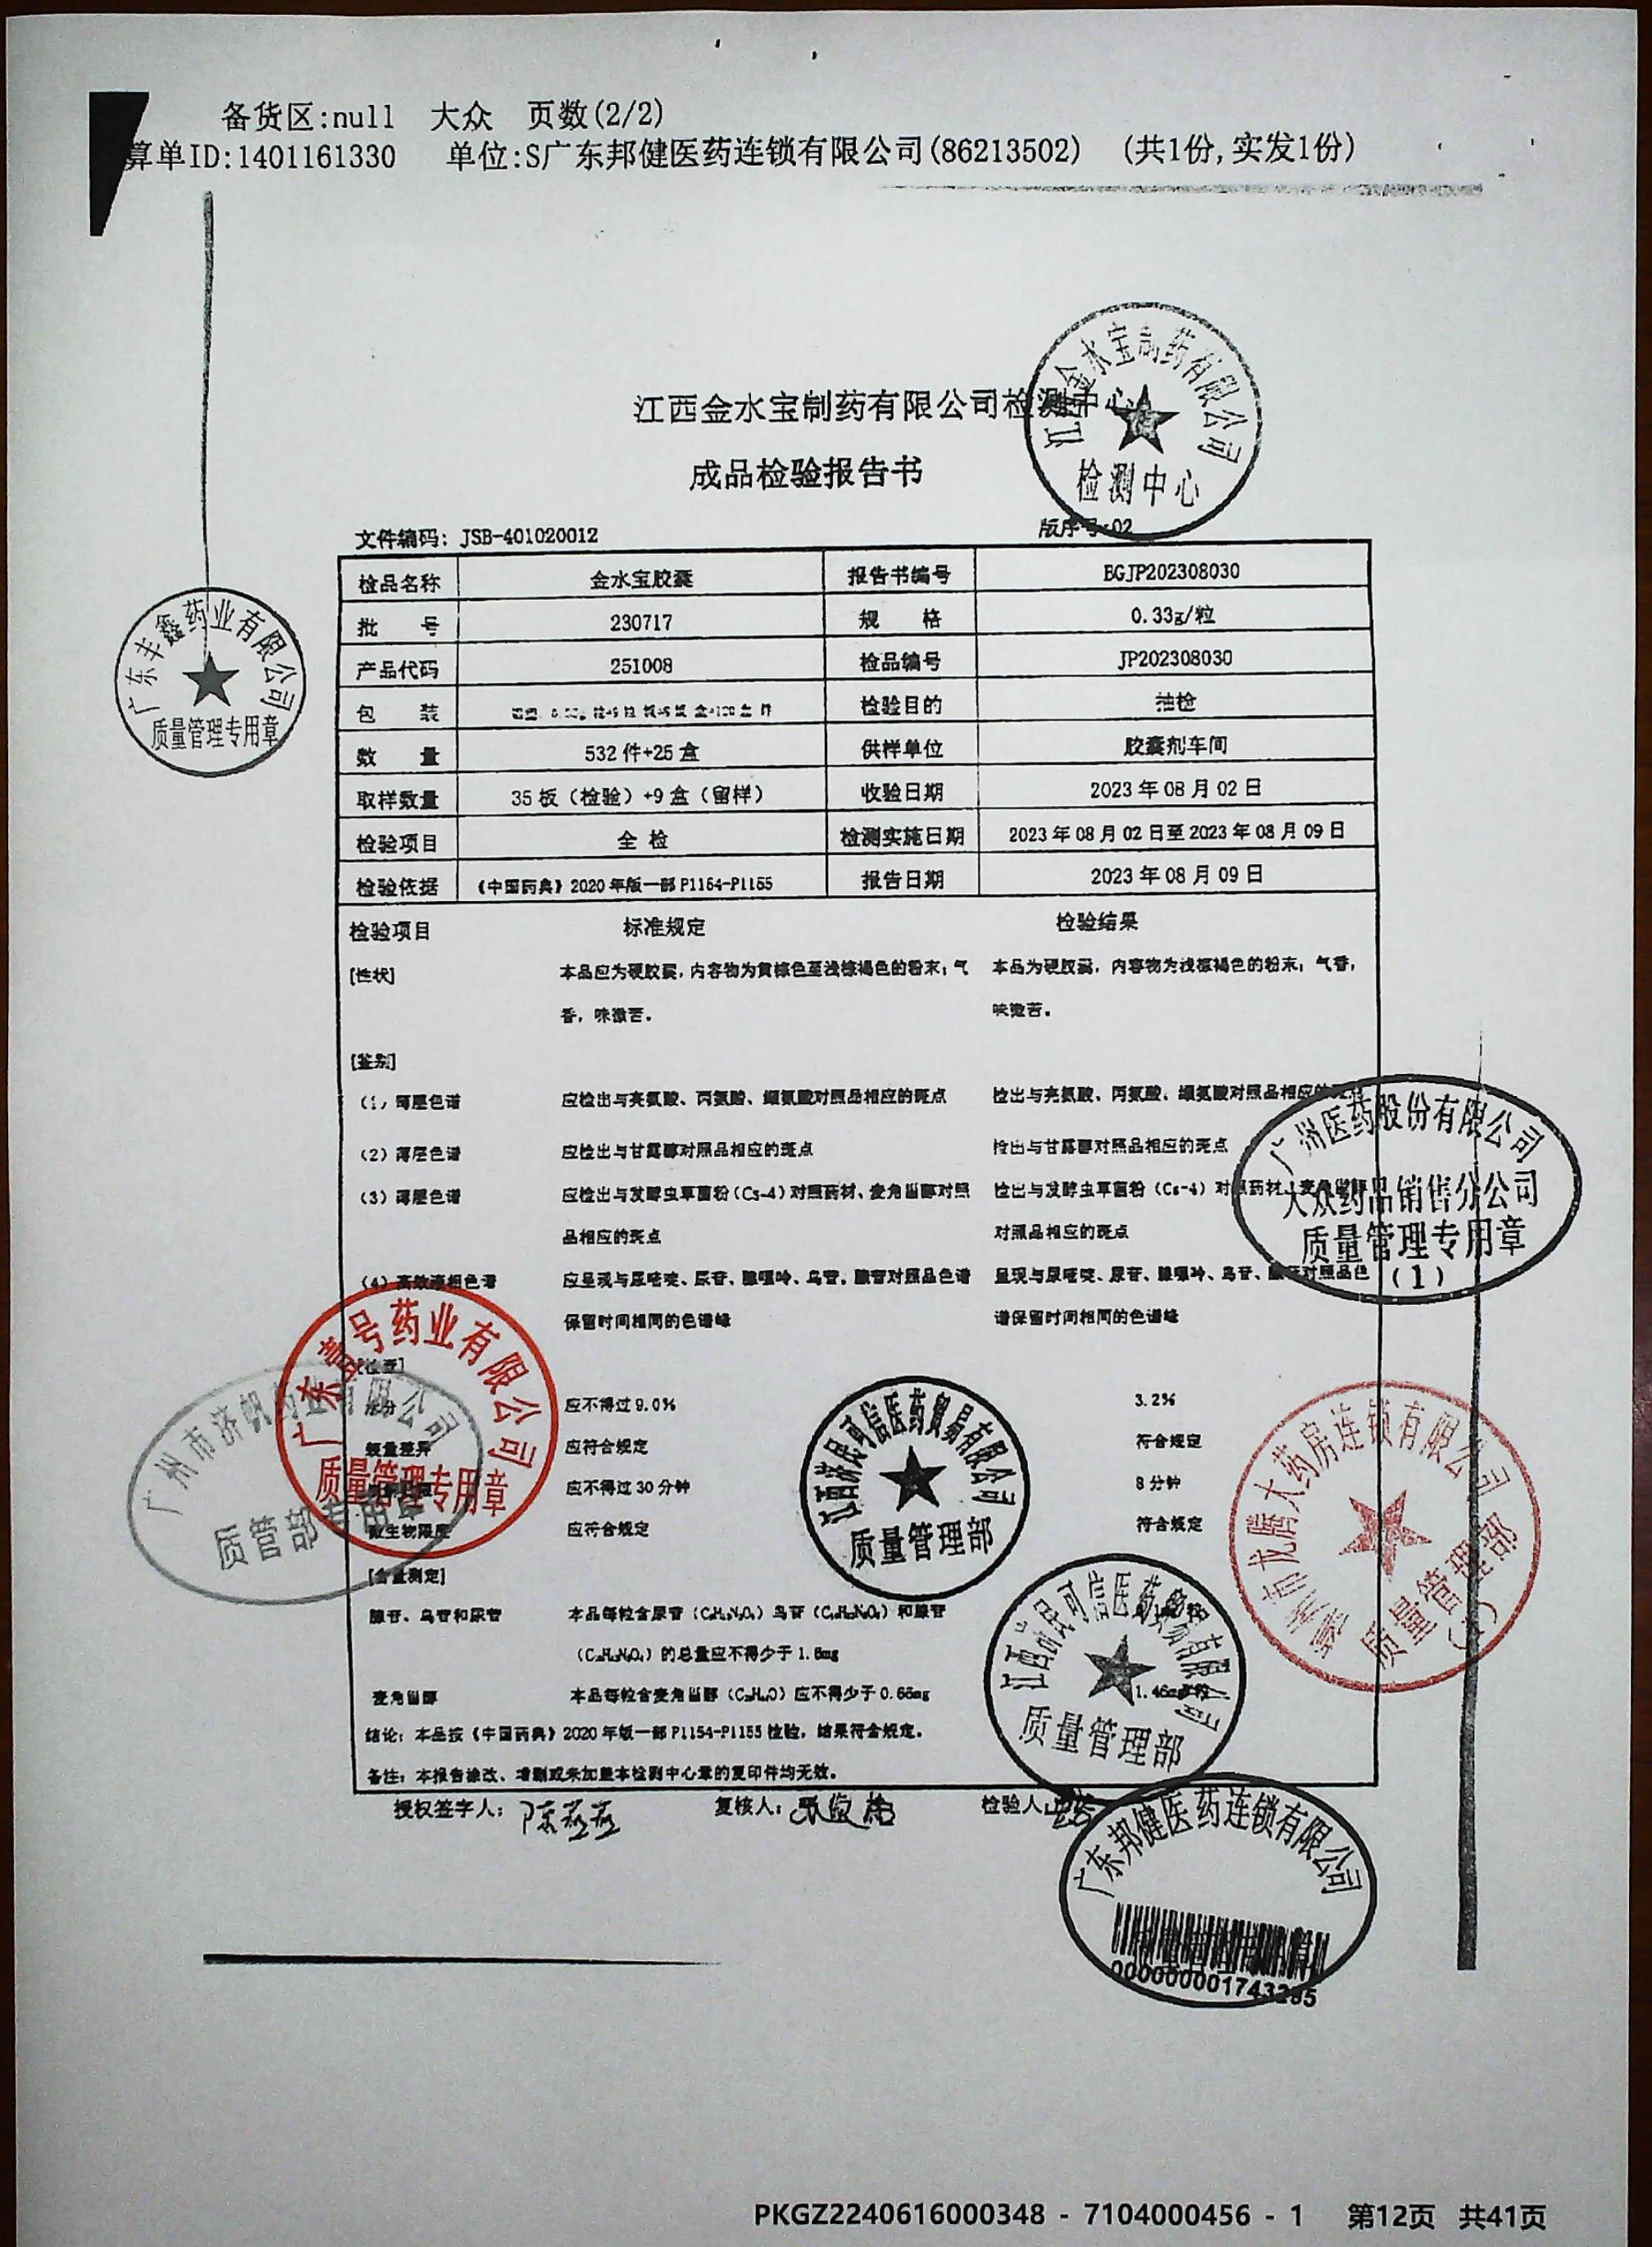 备货区:null 大众 页数(2/2)
算单ID:1401161330 单位:S广东邦健医药连锁有限公司(86213502) (共1份,实发1份)
江西金水宝制药有限公司检测中心
江西金水宝制药有限公司
检测中心
成品检验报告书
文件编码: JSB-401020012 版序号:02
检品名称 金水宝胶囊 报告书编号 BGJP202308030
批 号 230717 规 格 0.33g/粒
产品代码 251008 检品编号 JP202308030
包 装 检验目的 抽检
数 量 532 件+25 盒 供样单位 胶囊剂车间
取样数量 35 板（检验）+9 盒（留样） 收验日期 2023 年 08 月 02 日
检验项目 全 检 检测实施日期 2023 年 08 月 02 日至 2023 年 08 月 09 日
检验依据 《中国药典》2020 年版一部 P1154-P1155 报告日期 2023 年 08 月 09 日
广东丰鑫药业有限公司
质量管理专用章
检验项目 标准规定 检验结果
[性状] 本品应为硬胶囊，内容物为黄棕色至浅棕褐色的粉末；气 本品为硬胶囊，内容物为浅棕褐色的粉末；气香，
香，味微苦。 味微苦。
[鉴别]
(1) 薄层色谱 应检出与亮氨酸、丙氨酸、缬氨酸对照品相应的斑点 检出与亮氨酸、丙氨酸、缬氨酸对照品相应的斑点
(2) 薄层色谱 应检出与甘露醇对照品相应的斑点 检出与甘露醇对照品相应的斑点
(3) 薄层色谱 应检出与发酵虫草菌粉（Cs-4）对照药材、麦角甾醇对照 检出与发酵虫草菌粉（Cs-4）对照药材、麦角甾醇
品相应的斑点 对照品相应的斑点
(4) 高效液相色谱 应呈现与尿嘧啶、尿苷、腺嘌呤、鸟苷、腺苷对照品色谱 呈现与尿嘧啶、尿苷、腺嘌呤、鸟苷、腺苷对照品色
保留时间相同的色谱峰 谱保留时间相同的色谱峰
广州医药股份有限公司
大众药品销售分公司
质量管理专用章
(1)
[检查]
水分 应不得过 9.0% 3.2%
装量差异 应符合规定 符合规定
应不得过 30 分钟 8 分钟
微生物限度 应符合规定 符合规定
广东壹号药业有限公司
质量管理专用章
广州市济帆药业有限公司
质管部专用章
江西济民可信医药贸易有限公司
质量管理部
市龙腾大药房连锁有限公司
质量管理部
[含量测定]
腺苷、鸟苷和尿苷 本品每粒含尿苷 鸟苷 和腺苷
的总量应不得少于
麦角甾醇 本品每粒含麦角甾醇 应不得少于
江西 民可信医药贸易有限公司
质量管理部
结论：本品按《中国药典》2020 年版一部 P1154-P1155 检验，结果符合规定。
备注：本报告涂改、增删或未加盖本检测中心章的复印件均无效。
授权签字人: 陈 复核人: 检验人
广东邦健医药连锁有限公司
PKGZ2240616000348 - 7104000456 - 1 第12页 共41页